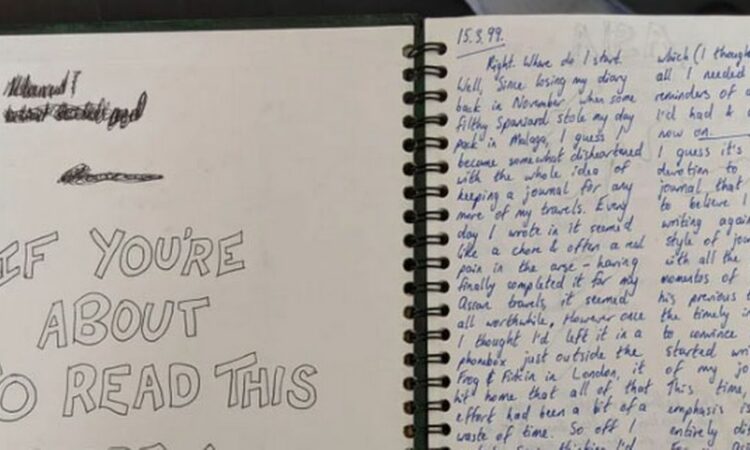 IF YOU'RE
ABOUT
TO READ THIS
15.3.99.
Right. Where do I start.
Well, Since losing my diary
back in November when some
filthy Spaniard stole my day
pack in Malaga, I guess I
became somewhat disheartened
with the whole idea of
keeping a journal for any
more of my travels. Every
day I wrote in it seemed
like a chore & often a real
pain in the arse - having
finally completed it for my
travels, it seemed
all worthwhile. However once
I thought I'd left it in a
phonebox just outside the
Frog & Firkin in London, it
hit home that all of that
effort had been a bit of a
waste of time. So off I
thinking I'd
which (I thought
all I needed
reminders of
I'd had &
now on.
I guess it's
devotion to
journal that
to believe I
writing again
style of jour
with all the
momentos of
his previous
the timely in
to convince
started wri
of my jo
This time,
emphasis is
entirely dis